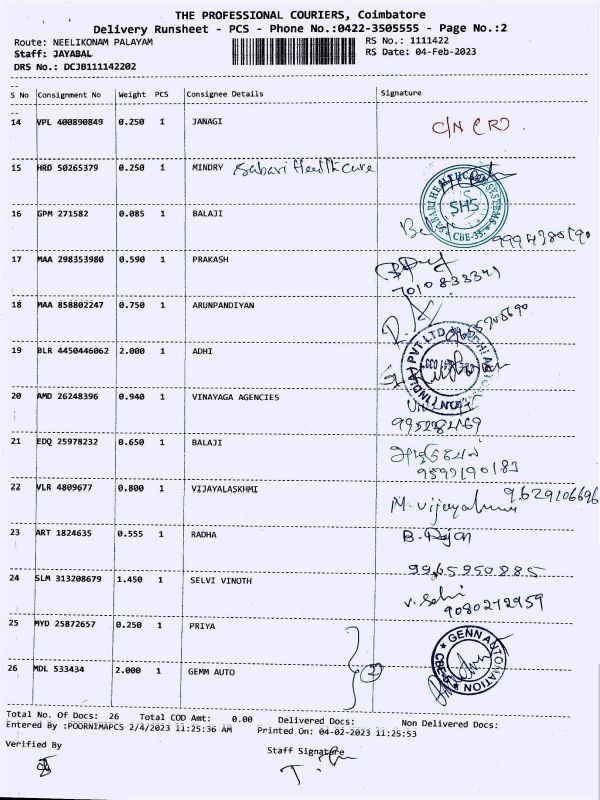 THE PROFESSIONAL COURIERS, Coimbatore
Delivery Runsheet - PCS - Phone No.:0422-3505555 - Page No.:2
Route: NEELIKONAM PALAYAM
RS No.: 1111422
Staff: JAYABAL
RS Date: 04-Feb-2023
DRS No.: DCJB111142202
S No Consignment No Weight PCS Consignee Details Signature
14 VPL 400890849 0.250 1 JANAGI
C/N
15 HRD 50265379 0.250 1 MINDRY Sabari Health care
SABARI HEALTHCARE SYSTEMS
SHS
CBE-35.
16 GPM 271582 0.085 1 BALAJI
17 MAA 298353980 0.590 1 PRAKASH
7010833349
18 MAA 858802247 0.750 1 ARUNPANDIYAN
19 BLR 4450446062 2.000 1 ADHI
20 AMD 26248396 0.940 1 VINAYAGA AGENCIES
21 EDQ 25978232 0.650 1 BALAJI
22 VLR 4809677 0.800 1 VIJAYALASKHMI
9629106696
23 ART 1824635 0.555 1 RADHA
9965950885
24 SLM 313208679 1.450 1 SELVI VINOTH
V. Selvi
9080272959
25 MYD 25872657 0.250 1 PRIYA
GENN AUTOMATION
26 MDL 533434 2.000 1 GEMM AUTO
2
Total No. Of Docs: 26 Total COD Amt: 0.00 Delivered Docs: Non Delivered Docs:
Entered By :POORNIMAPCS 2/4/2023 11:25:36 AM Printed On: 04-02-2023 11:25:53
Verified By
Staff Signature